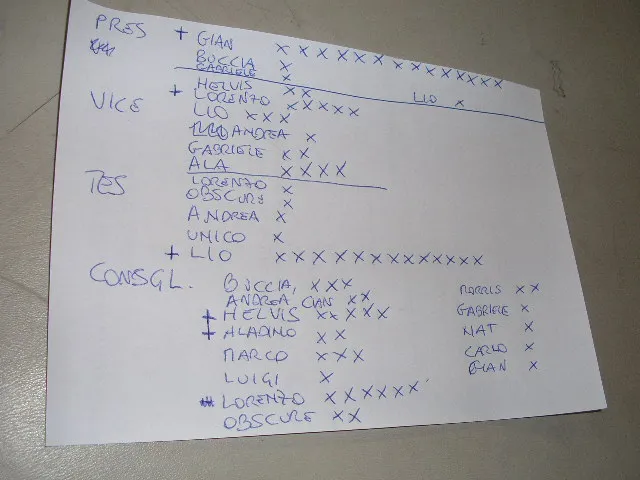 PRES + GIAN X X X X X X X X X X X X X X
BUCCIA X
GABRIELE X
HELVIS X X LIO X
VICE + LORENZO X X X X X
LIO X X X
ANDREA X
GABRIELE X X
ALA X X X X
TES LORENZO X
OBSCURY X
ANDREA X
UNICO X
+ LIO X X X X X X X X X X X X X
CONSGL. BUCCIA, X X X
ANDREA GIAN X X
+ HELVIS X X X X X
+ ALADINO X X
MARCO X X X
LUIGI X
LORENZO X X X X X X
OBSCURE X X
X X
GABRIELE X
NAT X
CARLO X
GIAN X